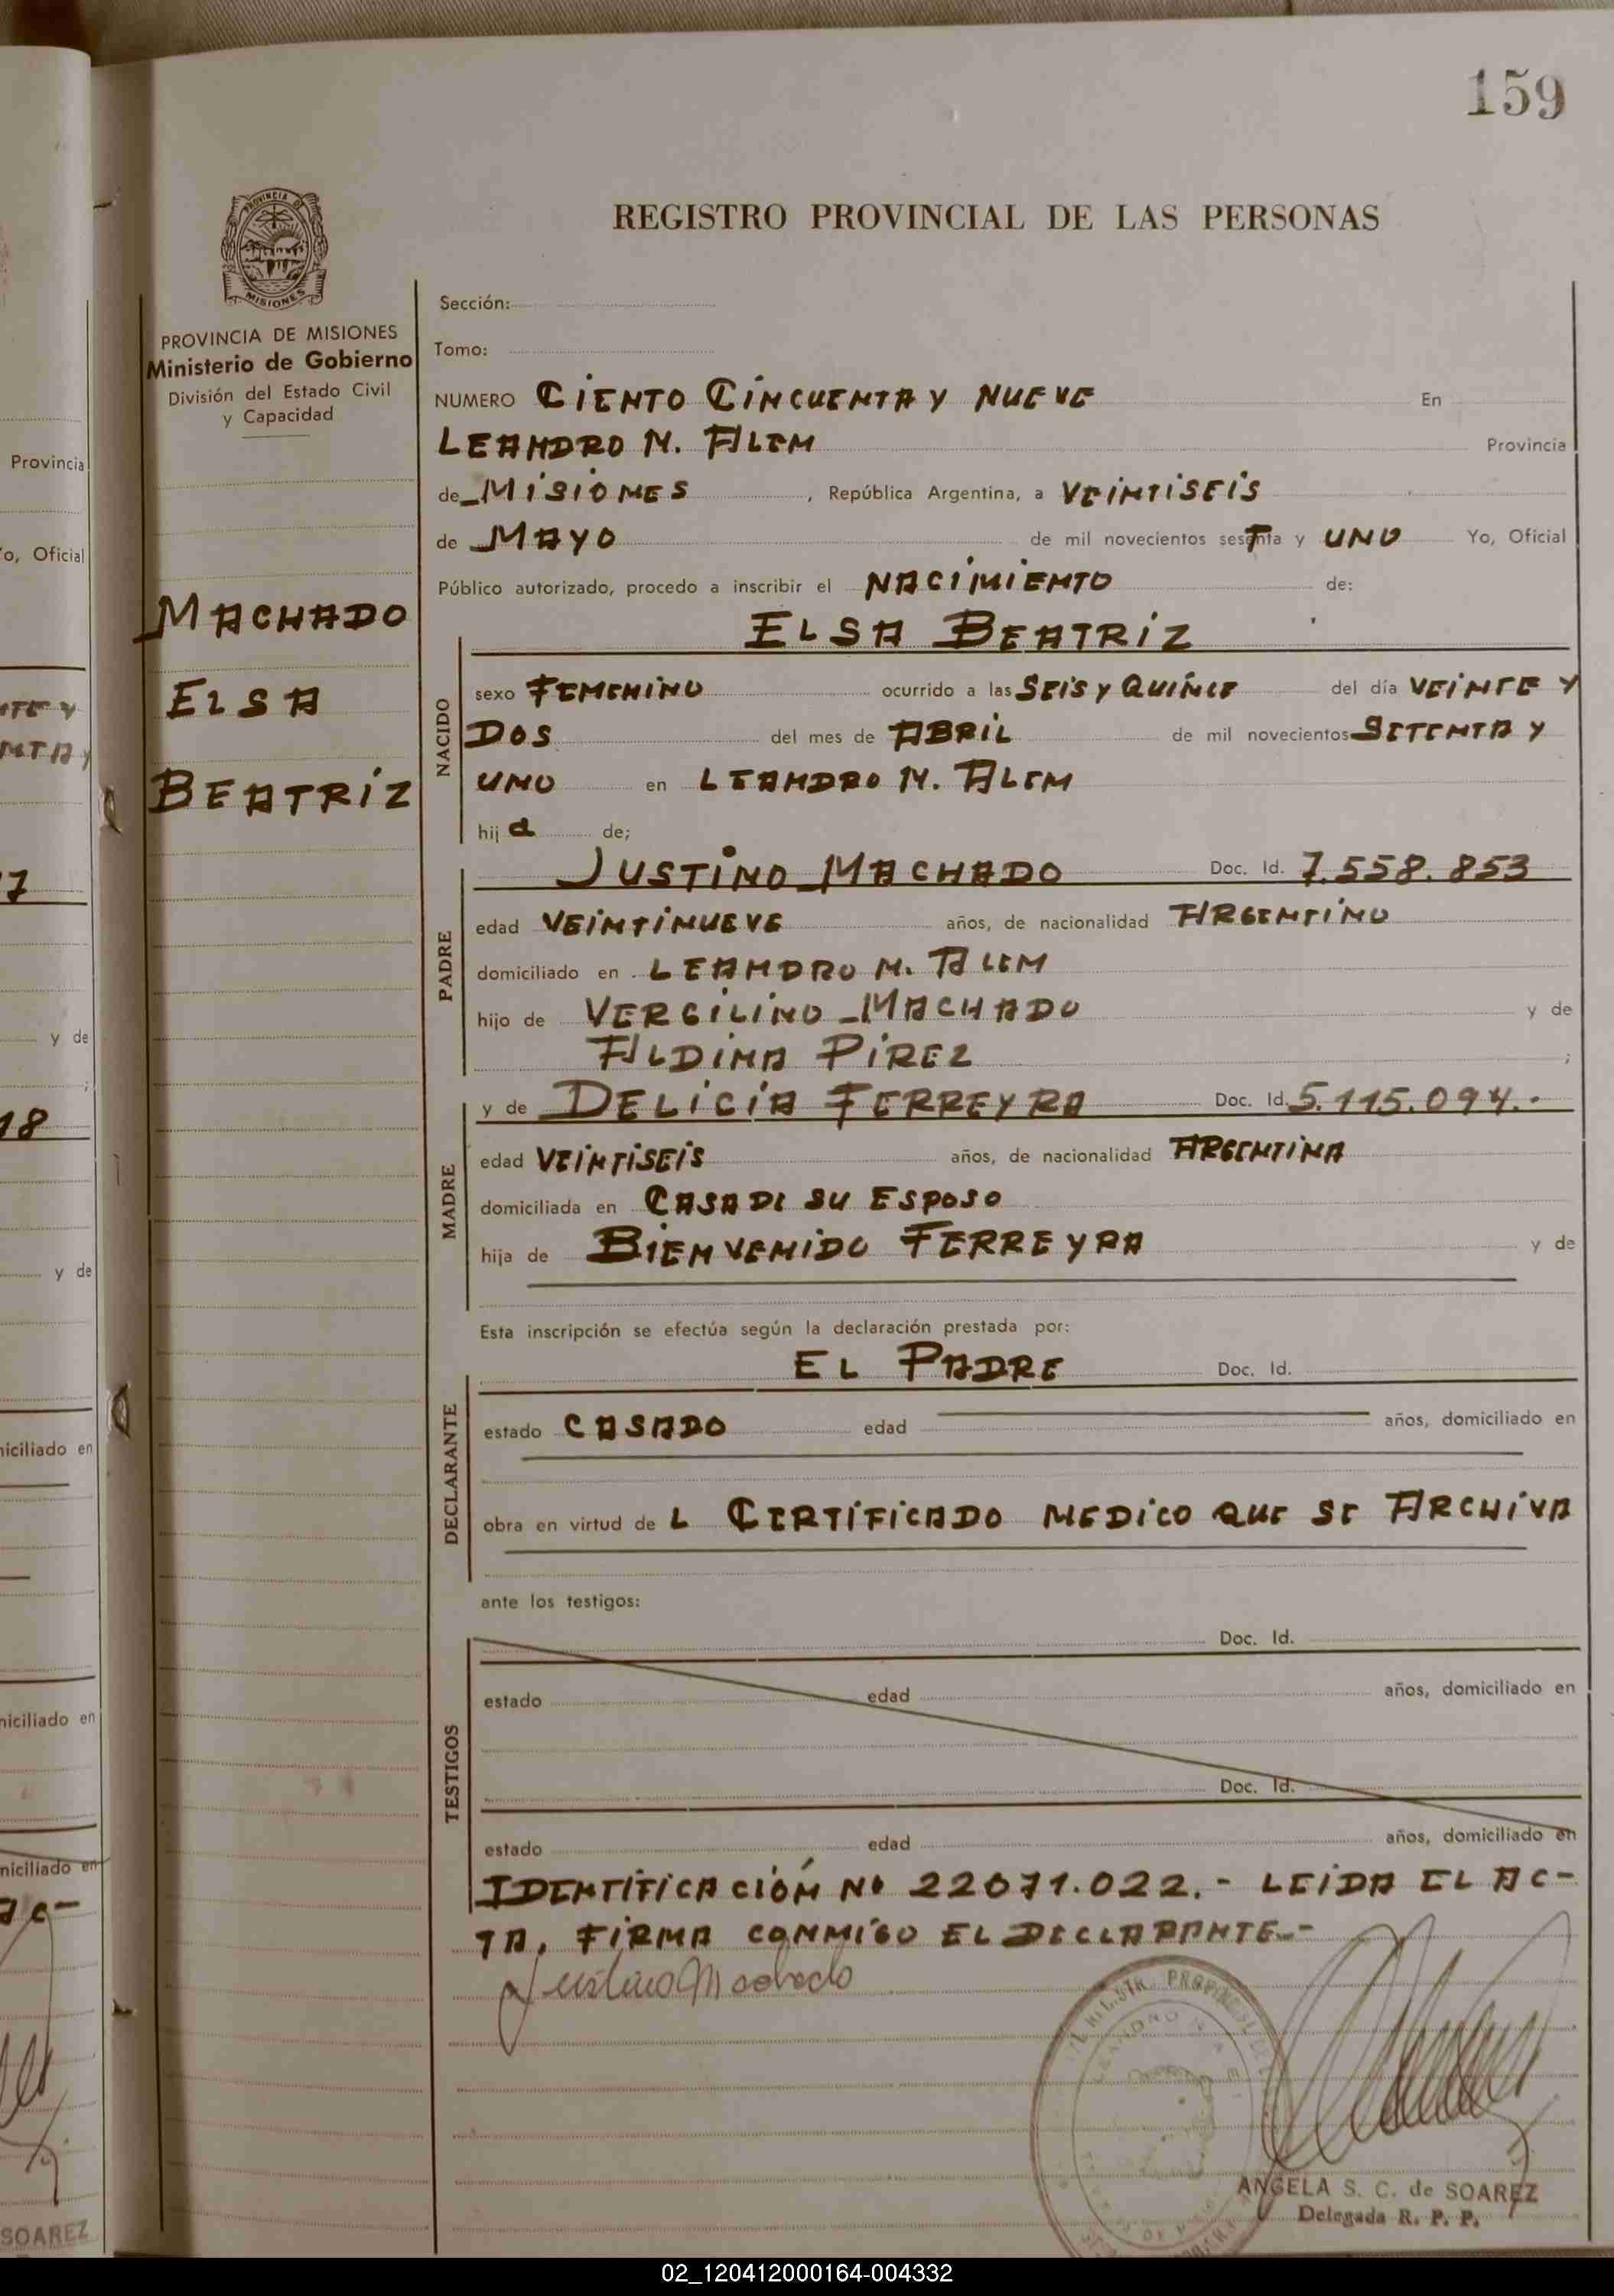 159
PROVINCIA DE
MISIONES
REGISTRO PROVINCIAL DE LAS PERSONAS
PROVINCIA DE MISIONES
Ministerio de Gobierno
División del Estado Civil
y Capacidad
MACHADO
ELSA
BEATRIZ
Sección:
Tomo:
NUMERO CIENTO CINCUENTA Y NUEVE En
LEANDRO N. ALEM Provincia
de MISIONES , República Argentina, a VEINTISEIS
de MAYO de mil novecientos sesenta y UNO Yo, Oficial
Público autorizado, procedo a inscribir el NACIMIENTO de:
ELSA BEATRIZ
NACIDO
sexo FEMENINO ocurrido a las SEIS Y QUINCE del día VEINTE Y
DOS del mes de ABRIL de mil novecientos SETENTA Y
UNO en LEANDRO N. ALEM
hij a de;
PADRE
JUSTINO MACHADO Doc. Id. 7.558.853
edad VEINTINUEVE años, de nacionalidad ARGENTINO
domiciliado en LEANDRO N. ALEM
hijo de VERGILINO MACHADO y de
ALDINA PIREZ ;
MADRE
y de DELICIA FERREYRA Doc. Id. 5.115.094.-
edad VEINTISEIS años, de nacionalidad ARGENTINA
domiciliada en CASA DE SU ESPOSO
hija de BIENVENIDO FERREYRA y de
Esta inscripción se efectúa según la declaración prestada por:
DECLARANTE
EL PADRE Doc. Id.
estado CASADO edad años, domiciliado en
obra en virtud de L CERTIFICADO MEDICO QUE SE ARCHIVA
ante los testigos:
TESTIGOS
Doc. Id.
estado edad años, domiciliado en
Doc. Id.
estado edad años, domiciliado en
IDENTIFICACIÓN No 22071.022.- LEIDA EL AC-
TA, FIRMA CONMIGO EL DECLARANTE.-
Justino Machado
ANGELA S. C. de SOAREZ
Delegada R. P. P.
Provincia
Yo, Oficial
y de
;
18
y de
niciliado en
niciliado en
niciliado en
SOAREZ
02_120412000164-004332